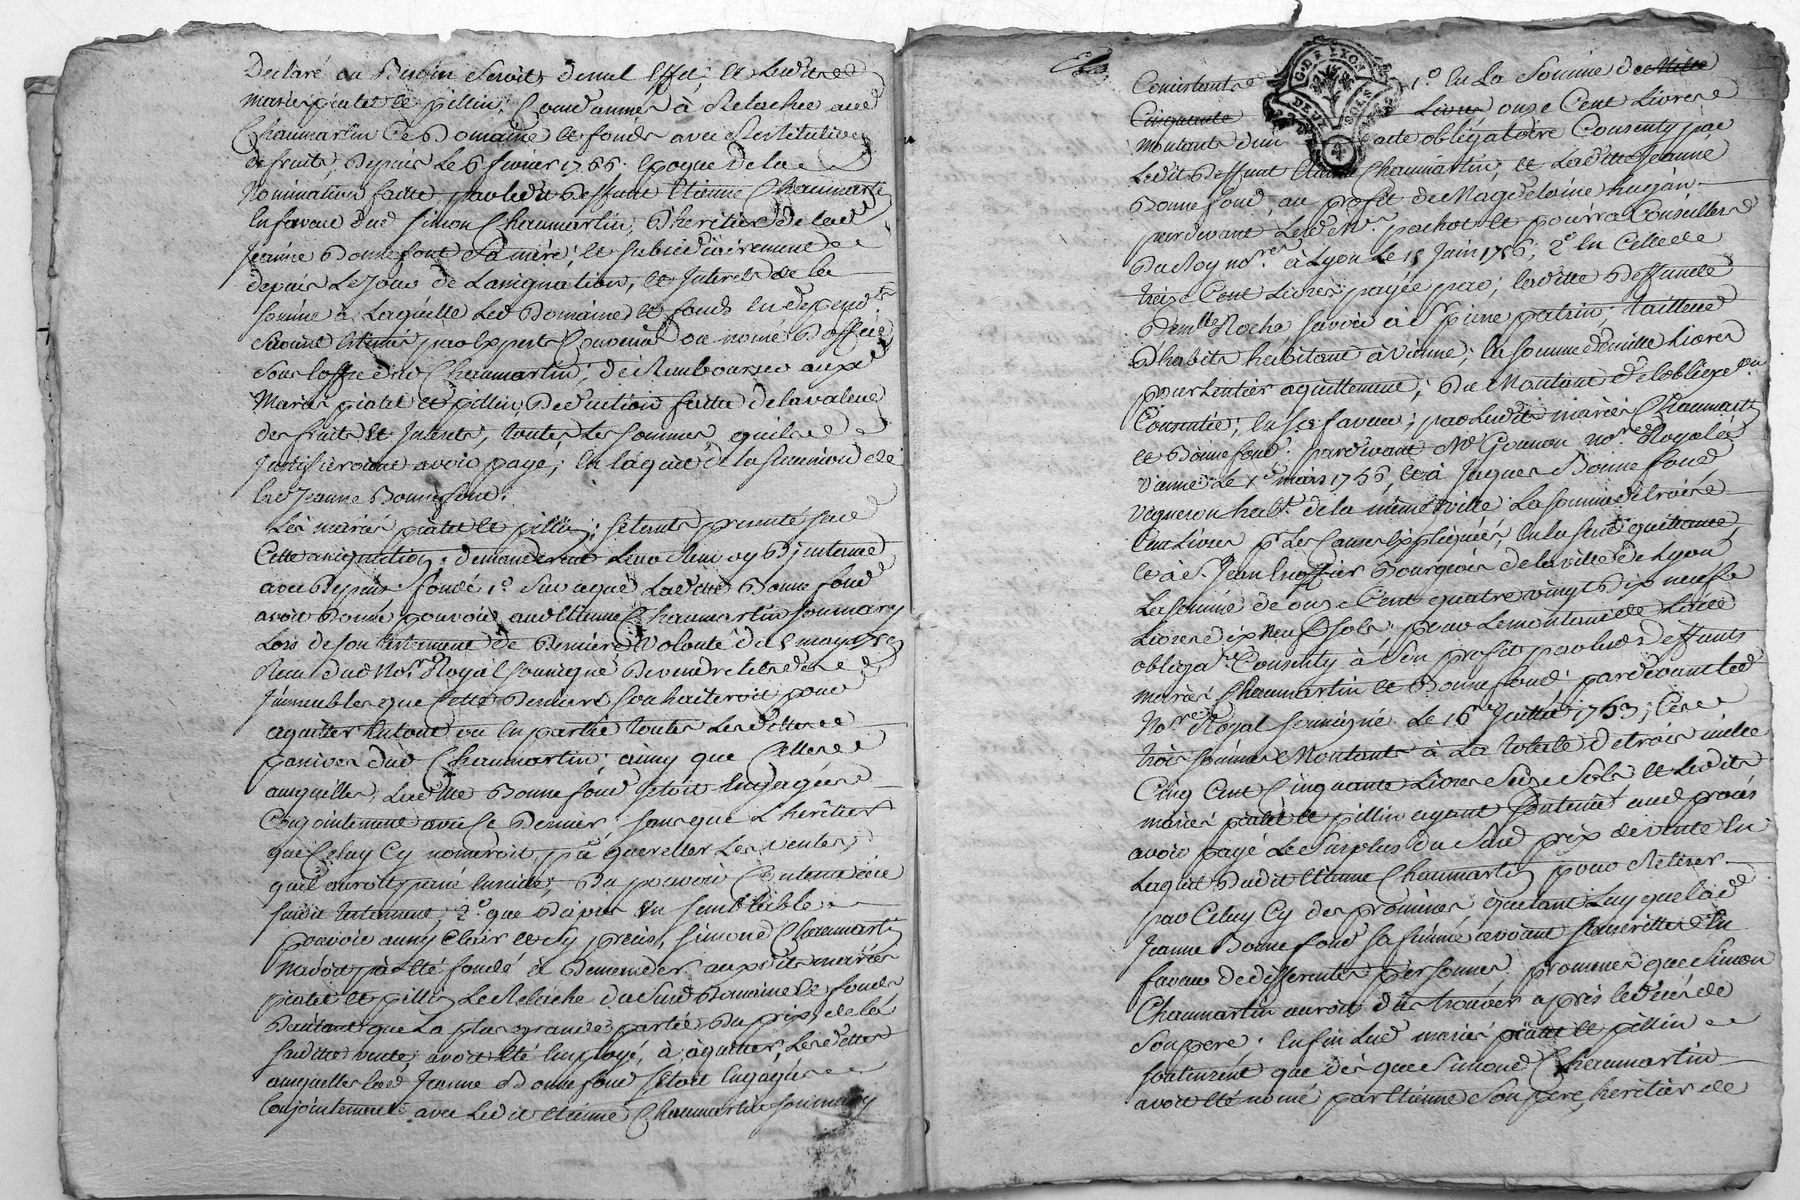 Declaré au Besoin Seroit de nul Effet; et Lesdits
mariés piatet et pillin, Condamnés à Relacher aud
Chaumartin Ce Domaine et fonds avec Restitution
de fruits, Depuis Le 6 fevrier 1766. Epoque de la
Nomination faitte par ledit Deffunt Etienne Chaumartin
En faveur dud Simon Chaumartin, D'heritier de lad
Jeanne Bonnefont Sa mere; et Subsidiairement
depuis Le Jour de L'assignation, et Interets de la
somme à Laquelle Led Domaine et fonds En dependts
Seroient Estimés par Experts Convenus ou només D'office
Sous L'offre dud Chaumartin, de Rembourser auxd
Mariés piatet et pillin, Deduction faitte de la valeur
des fruits et Interets, toutes Les sommes qu'ils
Justifieroient avoir payé, En L'aquit de la Succession de
lad Jeanne Bonnefont.
Les mariés piatet et pillin; s'etants presentés sur
Cette assignation, demanderent Leur Renvoy D'instance
avec Depens. fondé 1o. Sur ce que Ladite Bonnefond
avoit Donné pouvoir aud Etienne Chaumartin Son mary
Lors de son testement de Derniere Volonté du 5 may 1759
Reçu dud Nore. Royal Soussigné De vendre tels de
Immeubles que Cette Derniere Souhaiteroit pour
aquitter En tout ou En partie toutes Les dettes
passives dud Chaumartin; ainsy que Celles
auxquelles, Ladite Bonnefond s'etoit Engagée
Conjointement avec Ce Dernier. sans que L'heritier
que Celuy Cy nomeroit, put quereller Les ventes,
qu'il auroit passé Ensuite, Du pouvoir Contenu dans
Sudit testement, 2o. que D'apres Un Semblable
pouvoir aussy Clair et Sy precis, Simond Chaumartin
N'avoit pas Eté fondé à Demender auxdits mariés
piatet et pillin Le Relache du Sud Domaine et fonds
D'autant que La plus grande partie Du prix de la
Sudite vente, avoit Eté Employé, à aquitter, Les dettes
auxquelles lad Jeanne Bonnefond S'etoit Engagée
Conjointement avec Ledit Etienne Chaumartin son mary
G. DE LYON
DEUX SOLS
Consistants 1o. En La Somme de Mille
Cinquante Livres onze Cent Livres
montant d'un acte obligatoire Consenty par
Ledit Deffunt Etienne Chaumartin, et Ladite Jeanne
Bonnefond, au profit de Magdelaine hugon
pardevant Led Mr. pachot et pourra Conseillers
Du Roy nores. à Lyon Le 15 Juin 1756, 2o. En Celle de
treize Cent Livres payée par, ladite Deffuncte
Demlle Rocha, Savoir à Sr. pierre patrin. tailleur
D'habits habitant à Vienne, La somme de mille Livres
pour L'entier aquittement, Du Montant de L'obligaon
Consentie, En sa faveur, par Lesdits mariés Chaumartin
et Bonnefond. pardevant Me Gounon nore. Royal à
Vienne Le 1er mars 1756, et à Jaques Bonnefond
Vigneron habt. de la même Ville La somme de trois
Cent Livres pr Les Causes Expliquées, En La Sud quittance
et à Sr. Jean Bourgeois de la ville de Lyon
La somme de onze Cent quatre vingt Dix neuf
Livres dix Neuf Sols, pour Le montant de L'acte
obligare. Consenty à Son profit par lesd deffunts
mariés Chaumartin et Bonnefond. pardevant led
Nore. Royal Soussigné Le 16e Juillet 1753; Ces
trois sommes Montants à La totale de trois mille
Cinq Cent Cinquante Livres Seize Sols, et Lesdits
mariés piatet et pillin ayant Soutenu aud procés
avoir payé Le Surplus Du Sud prix de vente En
L'aquit Dudit Etienne Chaumartin pour Retirer
par Celuy Cy des promesses qu'etant Luy que lad
Jeanne Bonnefond Sa femme avoient Souscrittes En
faveur de differentes personnes, promesses que Simon
Chaumartin auroit du trouver apres le deces de
Son pere; Enfin Lesd mariés piatet et pillin
Soutenrent que dès que Simond Chaumartin
avoit Eté nomé par Etienne Son pere, heretier de